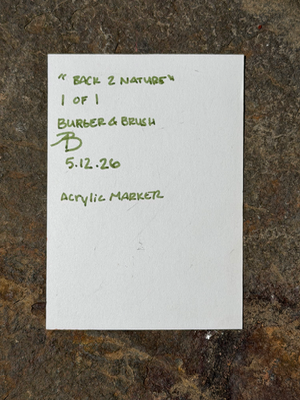 "BACK 2 NATURE"
1 OF 1
BURGER & BRUSH
B
5.12.26
Acrylic MARKER